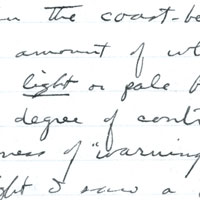 the coast-be
amount of wh
light or pale b
degree of contr
ness of "warning
ght I saw a